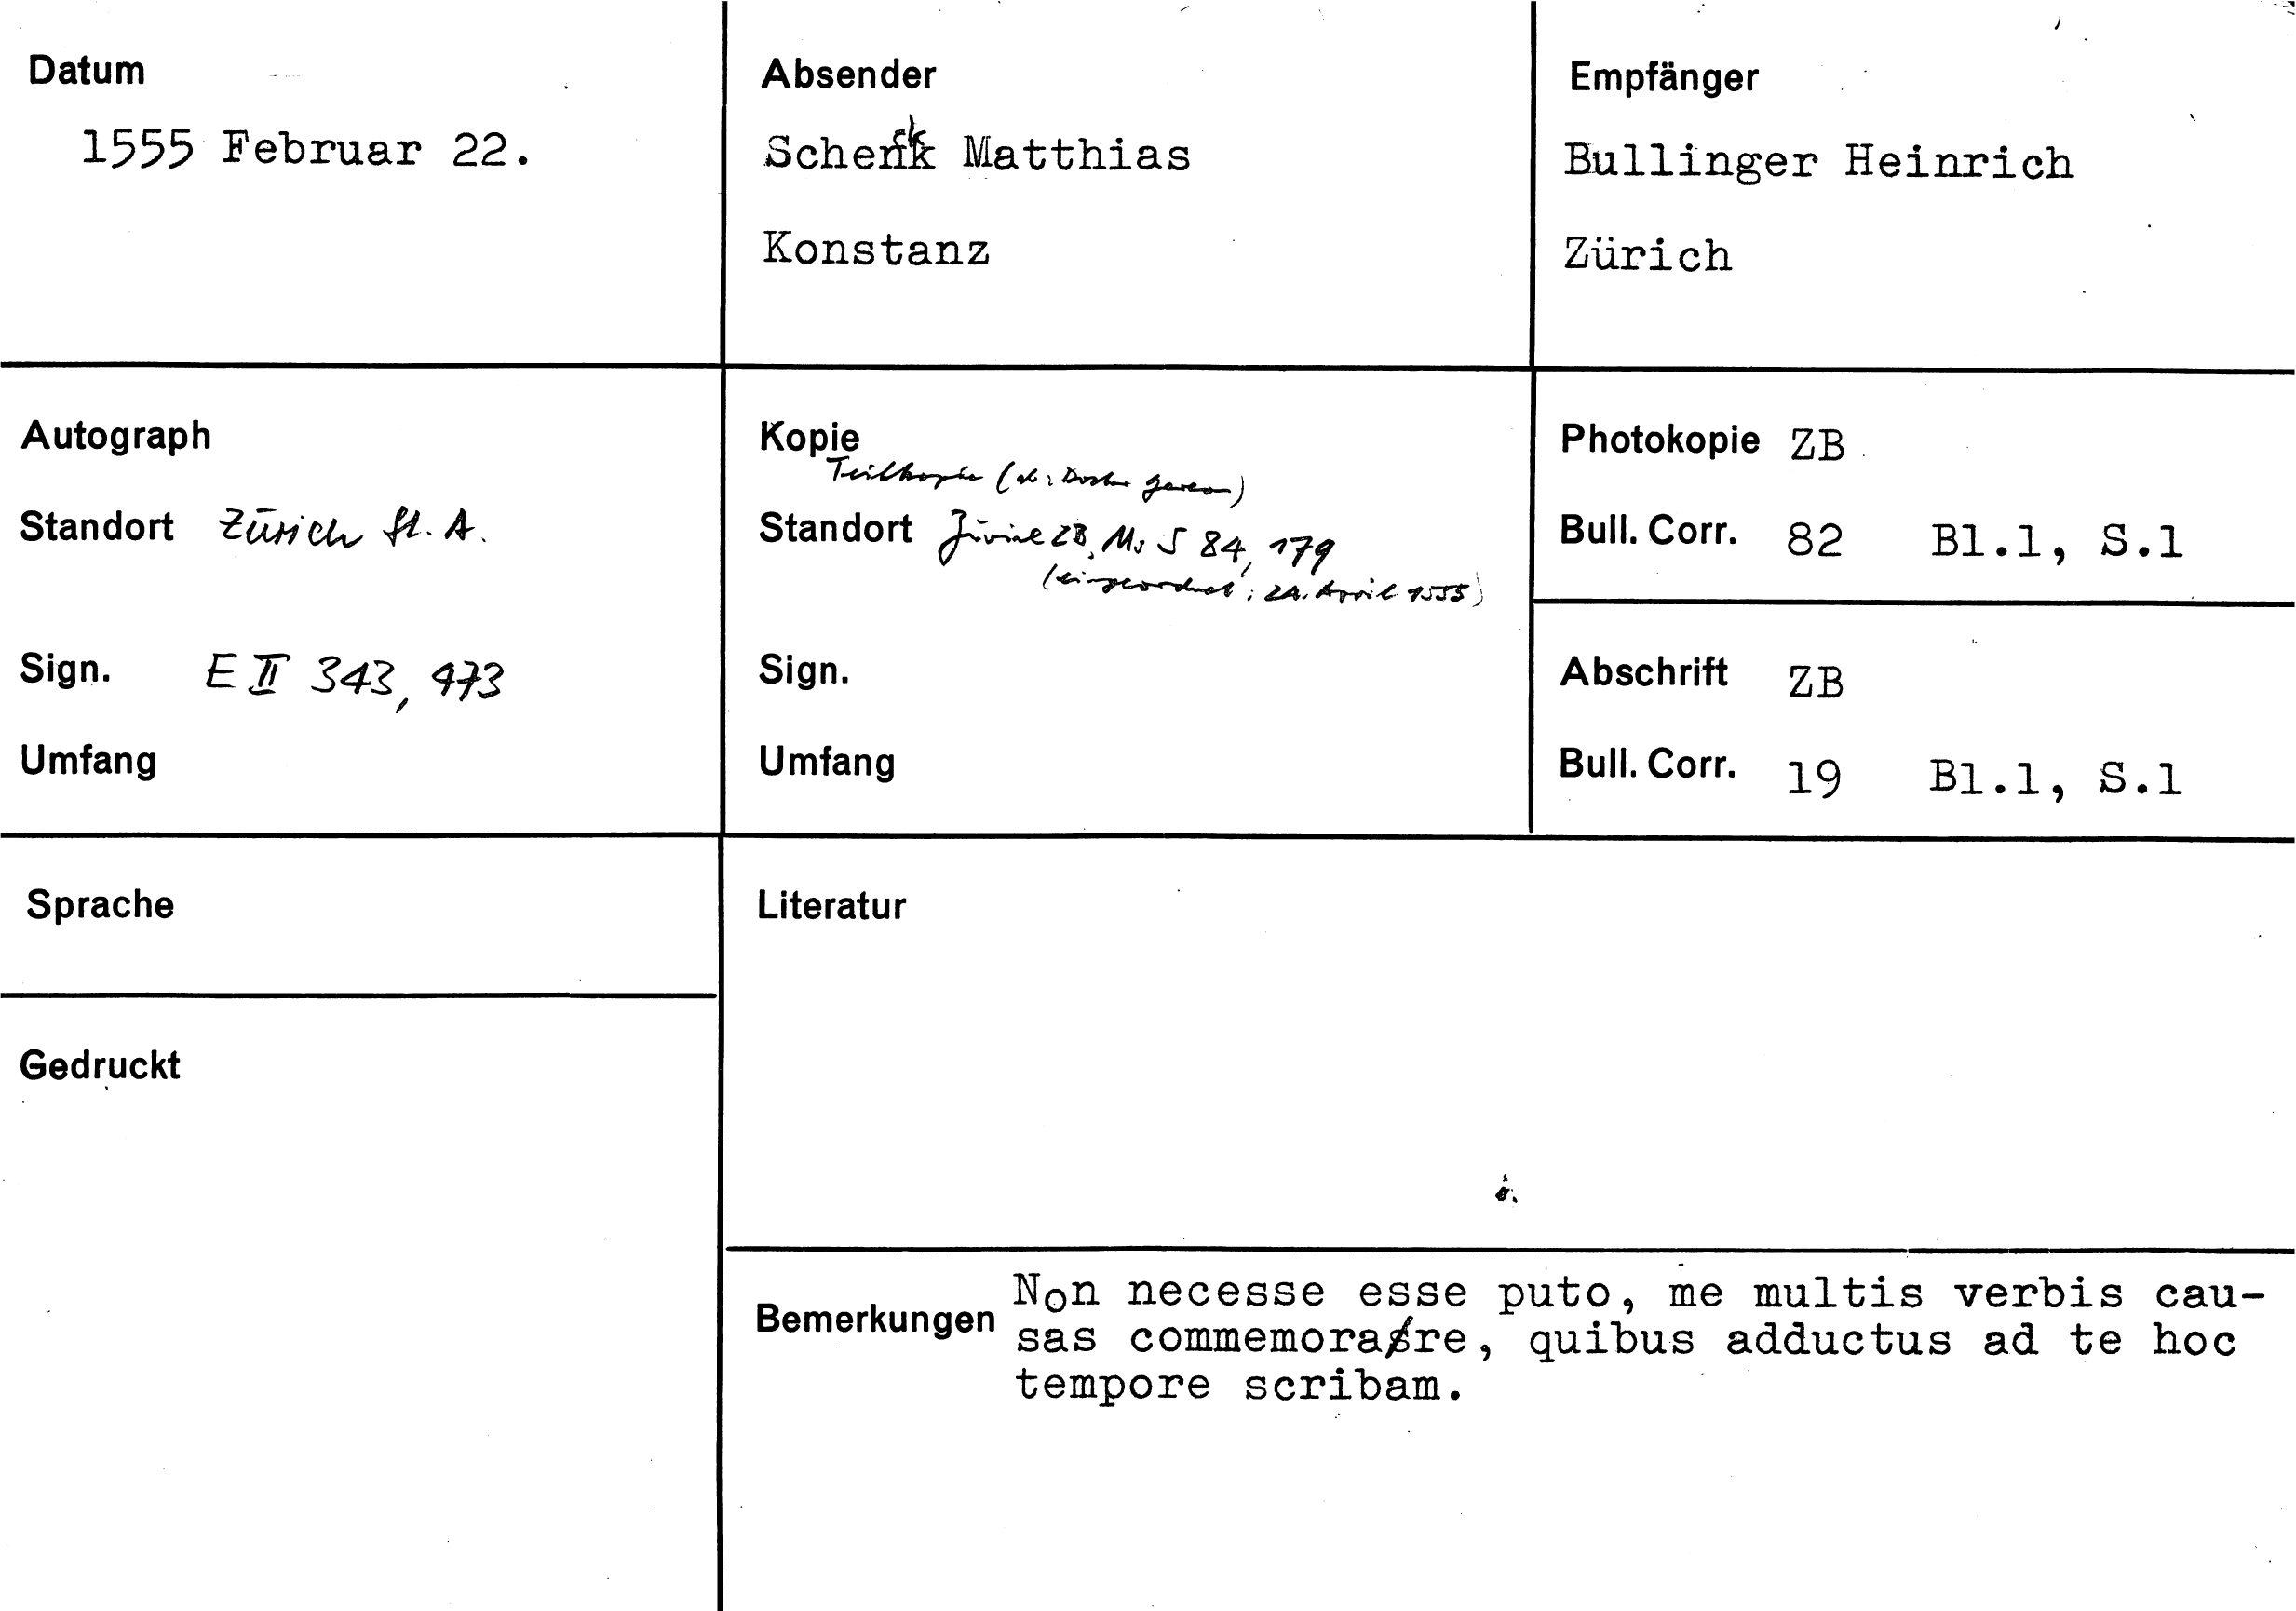 Datum
1555 Februar 22.
Absender
Schenk Matthias
Konstanz
Empfänger
Bullinger Heinrich
Zürich
Autograph
Standort Zürich St. A.
Sign. E II 343, 473
Umfang
Kopie
Teilkopie
Standort Zürich ZB, Ms S 84, 179
(eingeordnet: 24. April 1555)
Sign.
Umfang
Photokopie ZB
Bull. Corr. 82 Bl.1, S.1
Abschrift ZB
Bull. Corr. 19 Bl.1, S.1
Sprache
Gedruckt
Literatur
Bemerkungen
Non necesse esse puto, me multis verbis cau-
sas commemorare, quibus adductus ad te hoc
tempore scribam.